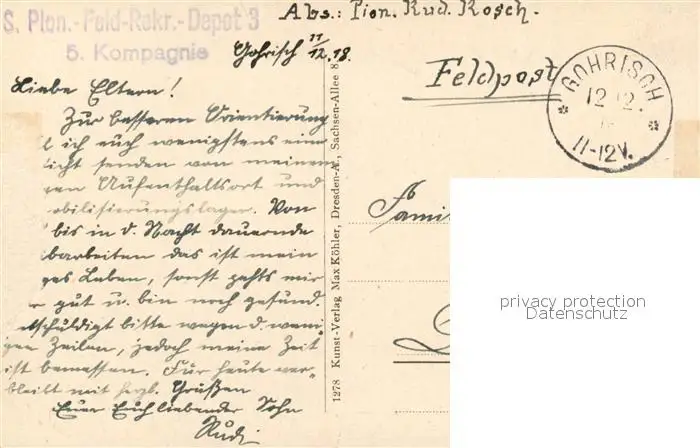 S. Pion.-Feld-Rekr.-Depot 3
5. Kompagnie
Abs.: Pion. Rud. Rosch.
Gohrisch 11/12.18.
Feldpost
GOHRISCH
12 12.
11-12V.
Liebe Eltern!
Zur besseren Orientierung
ich euch wenigstens eine
icht senden von meinem
en Aufenthaltsort und
obilisierungslager. Von
bis in d. Nacht dauernde
arbeiten das ist mein
ges Leben, sonst gehts mir
r gut u. bin noch gesund.
tschuldigt bitte wegen d. weni
gen Zeilen, jedoch meine Zeit
ist bemessen. Für heute ver-
bleibt mit herzl. Grüßen
Euer Euch liebender Sohn
Rudi
Fami
1278 Kunst-Verlag Max Köhler, Dresden-A., Sachsen-Allee 8
privacy protection
Datenschutz